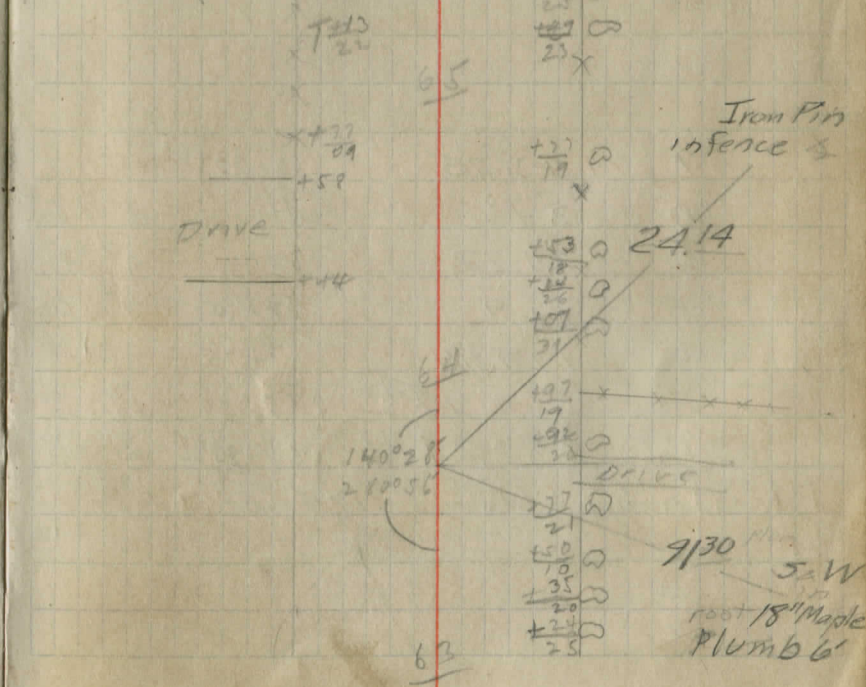 T+13
22
+49
23
65
Iron Pin
in fence
+77
09
+27
19
+58
Drive
24.14
+53
18
+44
26
+09
31
64
+97
19
+92
140°28'
280°56'
Drive
+77
21
9130
+50
10
S&W
+35
20
root 18" Maple
+24
25
Plumb 6'
63